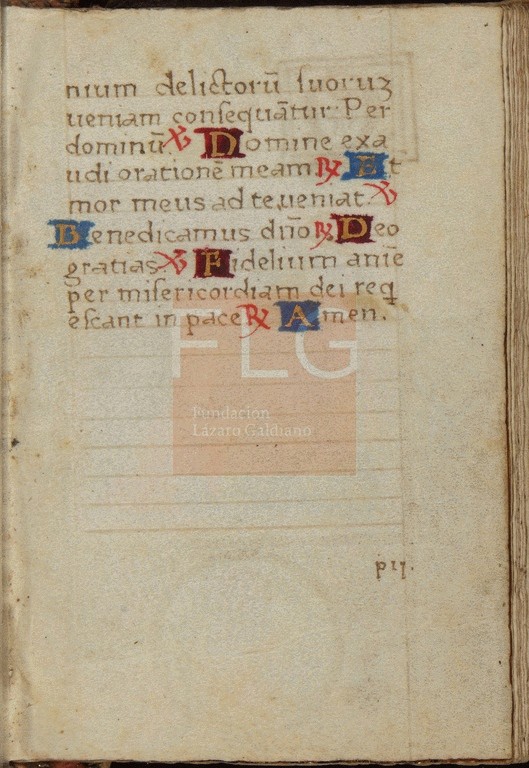 nium delictorū suoruʒ
ueniam consequātur. Per
dominū ℣ Domine exa
udi orationē meam ℟ Et
mor meus ad te ueniat. ℣
Benedicamus dn̄o ℟ Deo
gratias. ℣ Fidelium anīe
per misericordiam dei req̄
escant in pace ℟ Amen.
FLG
Fundación
Lázaro Galdiano